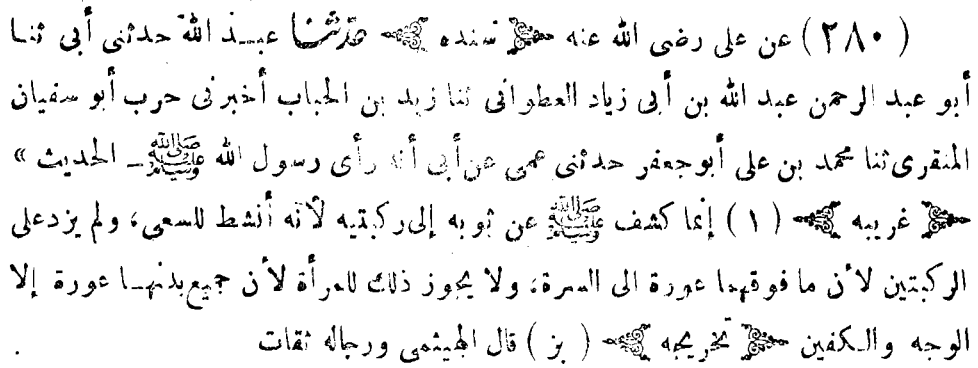 ( ٢٨٠ ) عن على رضى الله عنه ﴿ سنده ﴾ حدّثنا عبد الله حدثنى أبى ثنا
أبو عبد الرحمن عبد الله بن أبى زياد القطوانى ثنا زيد بن الحباب أخبرنى حرب أبو سفيان
المنقرى ثنا محمد بن على أبو جعفر حدثنى عمى عن أبى أنه رأى رسول الله ﷺ ــ الحديث »
﴿ غريبه ﴾ ( ١ ) إنما كشف ﷺ عن ثوبه إلى ركبتيه لأنه أنشط للسعى، ولم يزد على
الركبتين لأن ما فوقهما عورة الى السرة، ولا يجوز ذلك للمرأة لأن جميع بدنهـا عورة إلا
الوجه والـكفين ﴿ تخريجه ﴾ ( بز ) قال الهيثمى ورجاله ثقات .